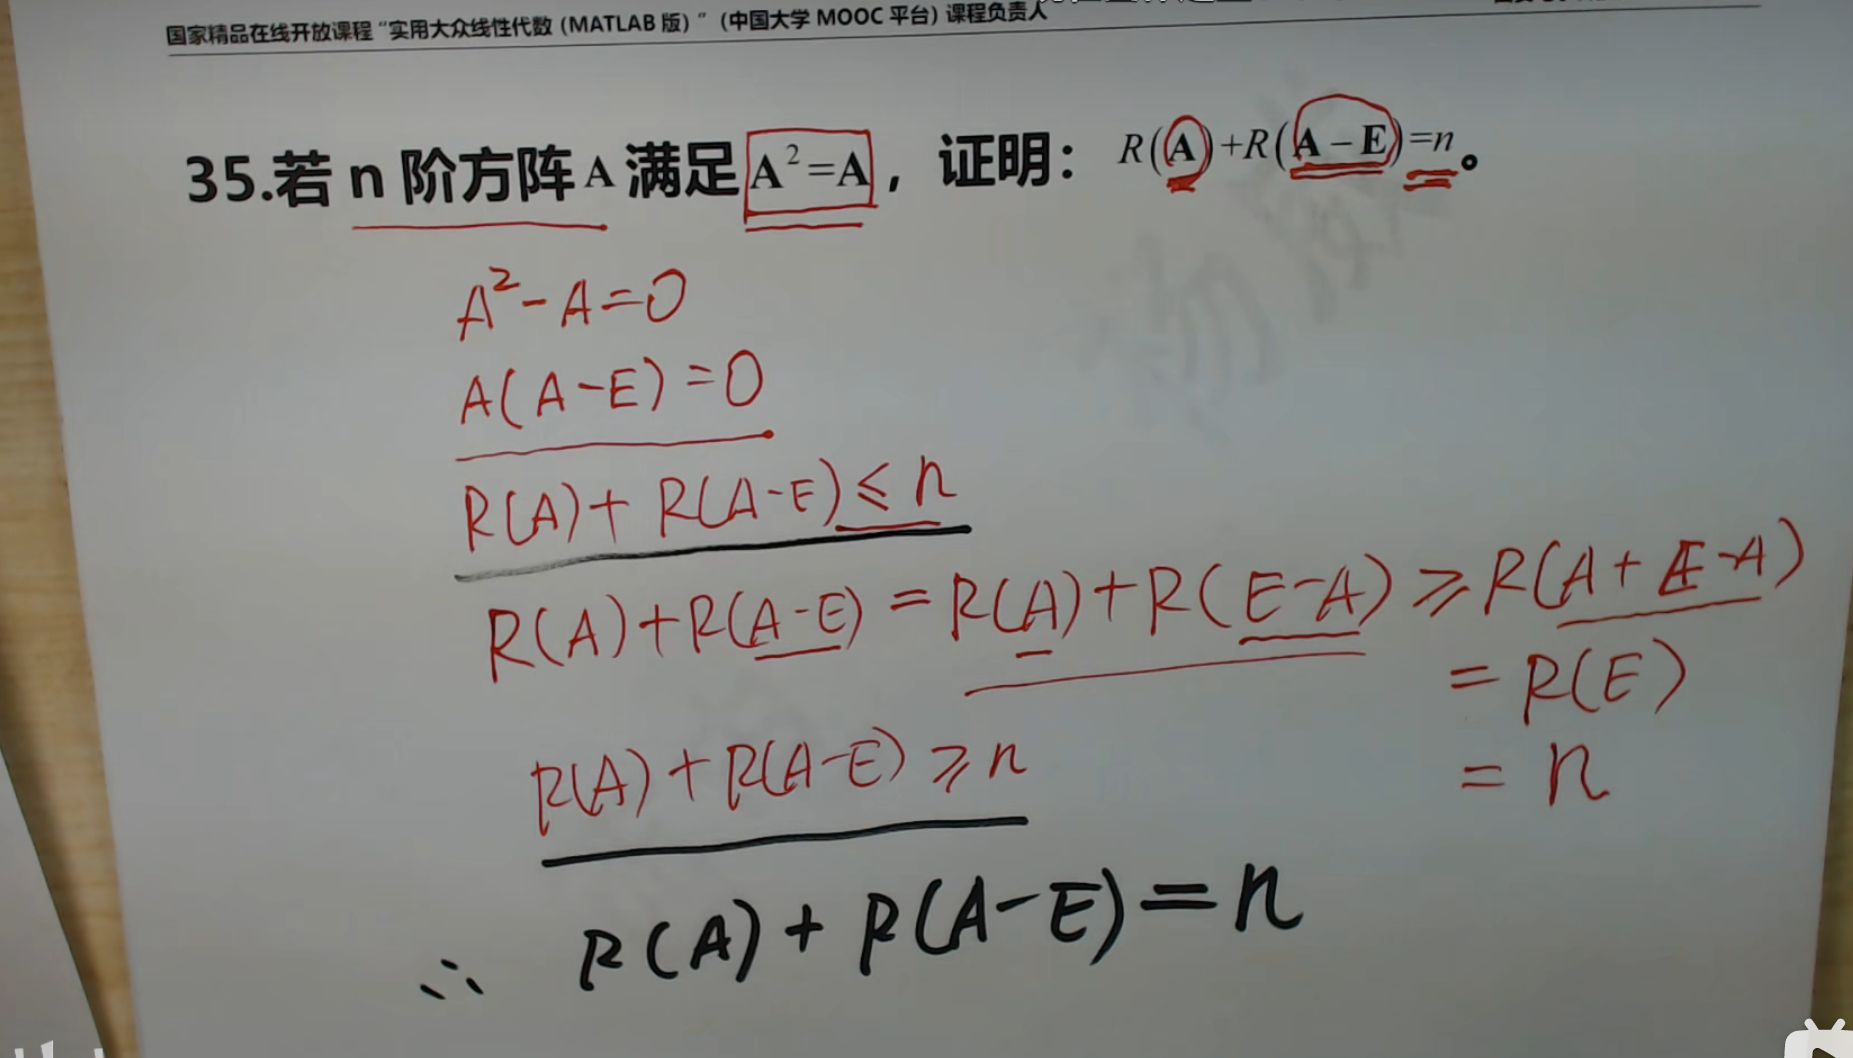 国家精品在线开放课程“实用大众线性代数（MATLAB 版）”（中国大学 MOOC 平台）课程负责人
35.若 n 阶方阵 A 满足 A²=A，证明：R(A)+R(A−E)=n。
A²-A=0
A(A-E)=0
R(A)+R(A-E)≤n
R(A)+R(A-E)=R(A)+R(E-A)≥R(A+E-A)
=R(E)
=n
R(A)+R(A-E)≥n
∴ R(A)+R(A-E)=n